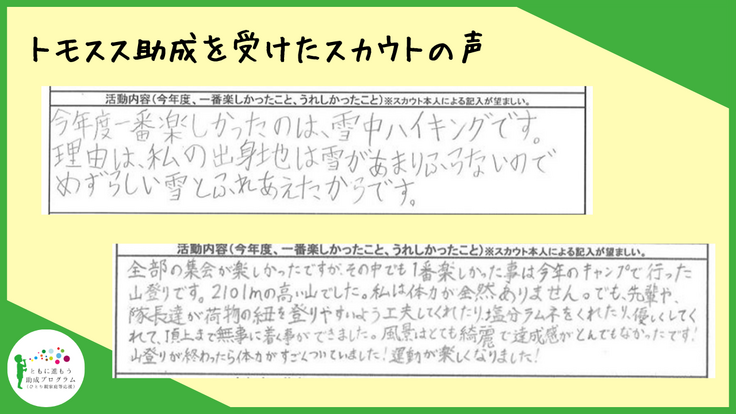 トモスス助成を受けたスカウトの声
活動内容(今年度、一番楽しかったこと、うれしかったこと)※スカウト本人による記入が望ましい。
今年度一番楽しかったのは、雪中ハイキングです。
理由は、私の出身地は雪があまりふらないので
めずらしい雪とふれあえたからです。
活動内容(今年度、一番楽しかったこと、うれしかったこと)※スカウト本人による記入が望ましい。
全部の集会が楽しかったですが、その中でも1番楽しかった事は今年のキャンプで行った
山登りです。2101mの高い山でした。私は体力が全然ありません。でも、先輩や、
隊長達が荷物の紐を登りやすいよう工夫してくれたり、塩分ラムネをくれたり、優しくしてく
れて、頂上まで無事に着く事ができました。風景はとても綺麗で達成感がとんでもなかったです!
山登りが終わったら体力がすごくついていました!運動が楽しくなりました!
ともに進もう
助成プログラム
(ひとり親家庭等応援)